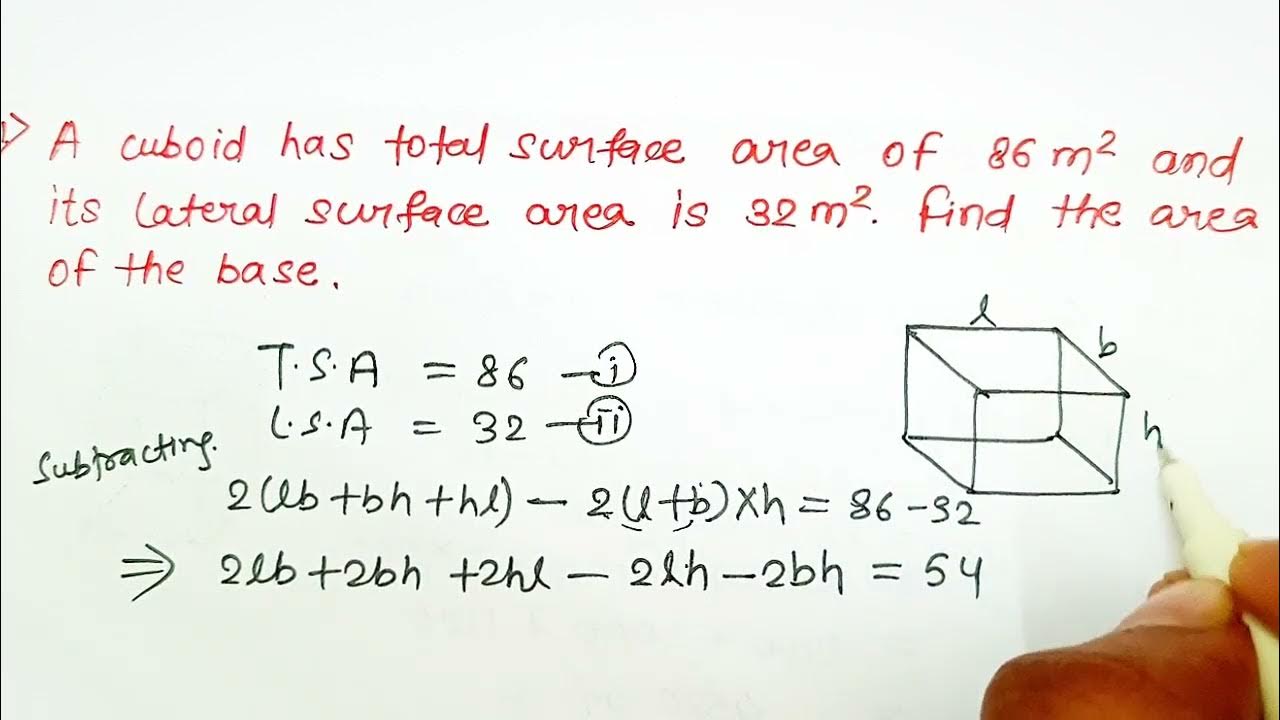 A cuboid has total surface area of 86 m² and
its lateral surface area is 32 m². Find the area
of the base.
T.S.A = 86 —(i)
L.S.A = 32 —(ii)
Subtracting.
2(lb + bh + hl) — 2(l+b) × h = 86 - 32
⇒ 2lb + 2bh + 2hl — 2lh — 2bh = 54
l
b
h